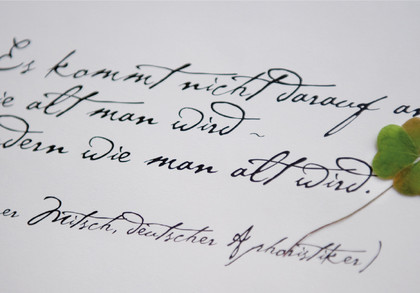 Es kommt nicht darauf an
ie alt man wird ~
dern wie man alt wird.
er Mitsch, deutscher Aphoristiker)